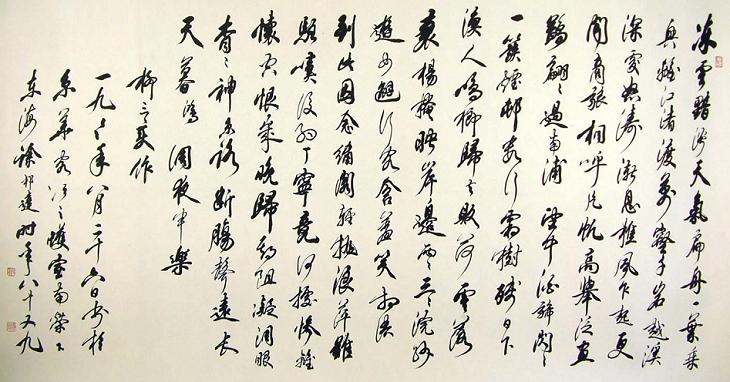 凍雲黯淡天氣扁舟一葉乘
興離江渚渡萬壑千岩越溪
深處怒濤漸息樵風乍起更
聞商旅相呼片帆高舉泛畫
鷁翩〻過南浦 望中酒旆閃〻
一簇煙邨數行霜樹殘日下
漁人鳴榔歸去敗荷零落
衰楊掩映岸邊兩〻三〻浣紗
遊女避行客含羞笑相語
到此因念繡閣輕拋浪萍難
駐嘆後約丁寧竟何據慘離
懷空恨歲晚歸期阻凝淚眼
杳〻神京路斷腸聲遠長
天暮鴻 調夜半樂
柳三變作
一九年八月二十六日書於
京華客次之窗南榮
東海徐邦達時年八十又九